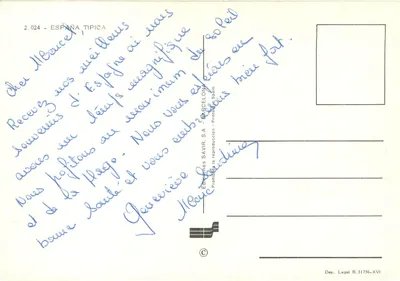 2.024 - ESPAÑA TIPICA
Cher Marcel
Recevez nos meilleurs
souvenirs d'Espagne où nous
avons un temps magnifique
Nous profitons au maximum du soleil
et de la plage. Nous vous espérons en
bonne santé et vous embrassons bien fort.
Geneviève
EDICIONES SAVIR, S.A. - BARCELONA
Prohibida la reproducción
©
Dep. Legal B. 31736-XVI